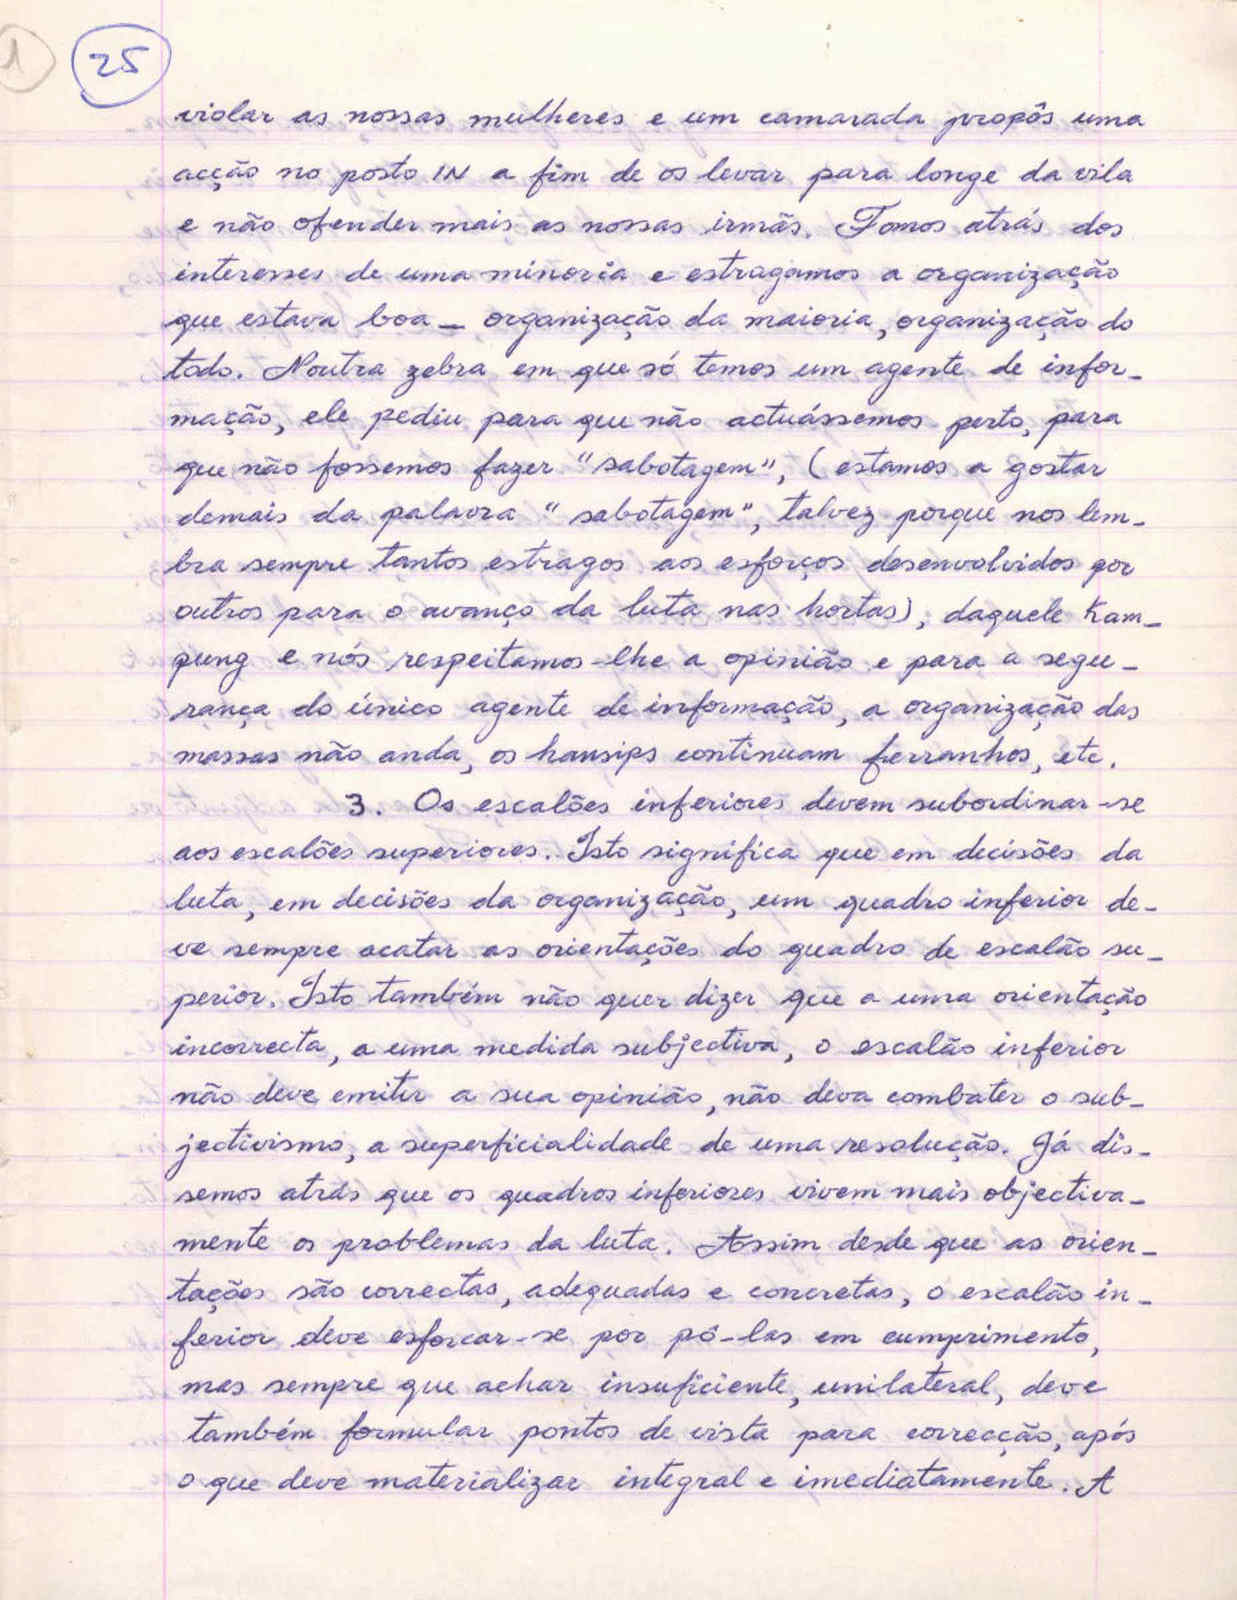 1
25
violar as nossas mulheres e um camarada propôs uma
acção no posto IN a fim de os levar para longe da vila
e não ofender mais as nossas irmãs. Fomos atrás dos
interesses de uma minoria e estragamos a organização
que estava boa – organização da maioria, organização do
todo. Noutra zebra em que só temos um agente de infor-
mação, ele pediu para que não actuássemos perto, para
que não fossemos fazer "sabotagem", (estamos a gostar
demais da palavra "sabotagem", talvez porque nos lem-
bra sempre tantos estragos aos esforços desenvolvidos por
outros para o avanço da luta nas hortas), daquele Kam-
pung e nós respeitamos-lhe a opinião e para a segu-
rança do único agente de informação, a organização das
massas não anda, os hansips continuam ferranhos, etc.
3. Os escalões inferiores devem subordinar-se
aos escalões superiores. Isto significa que em decisões da
luta, em decisões da organização, um quadro inferior de-
ve sempre acatar as orientações do quadro de escalão su-
perior. Isto também não quer dizer que a uma orientação
incorrecta, a uma medida subjectiva, o escalão inferior
não deve emitir a sua opinião, não deva combater o sub-
jectivismo, a superficialidade de uma resolução. Já dis-
semos atrás que os quadros inferiores vivem mais objectiva-
mente os problemas da luta. Assim desde que as orien-
tações são correctas, adequadas e concretas, o escalão in-
ferior deve esforcar-se por pô-las em cumprimento,
mas sempre que achar insuficiente, unilateral, deve
também formular pontos de vista para correcção, após
o que deve materializar integral e imediatamente. A